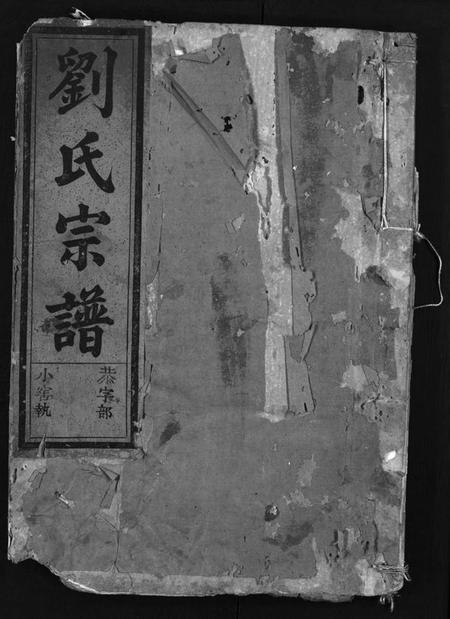 劉氏宗譜
恭字部
小窰執